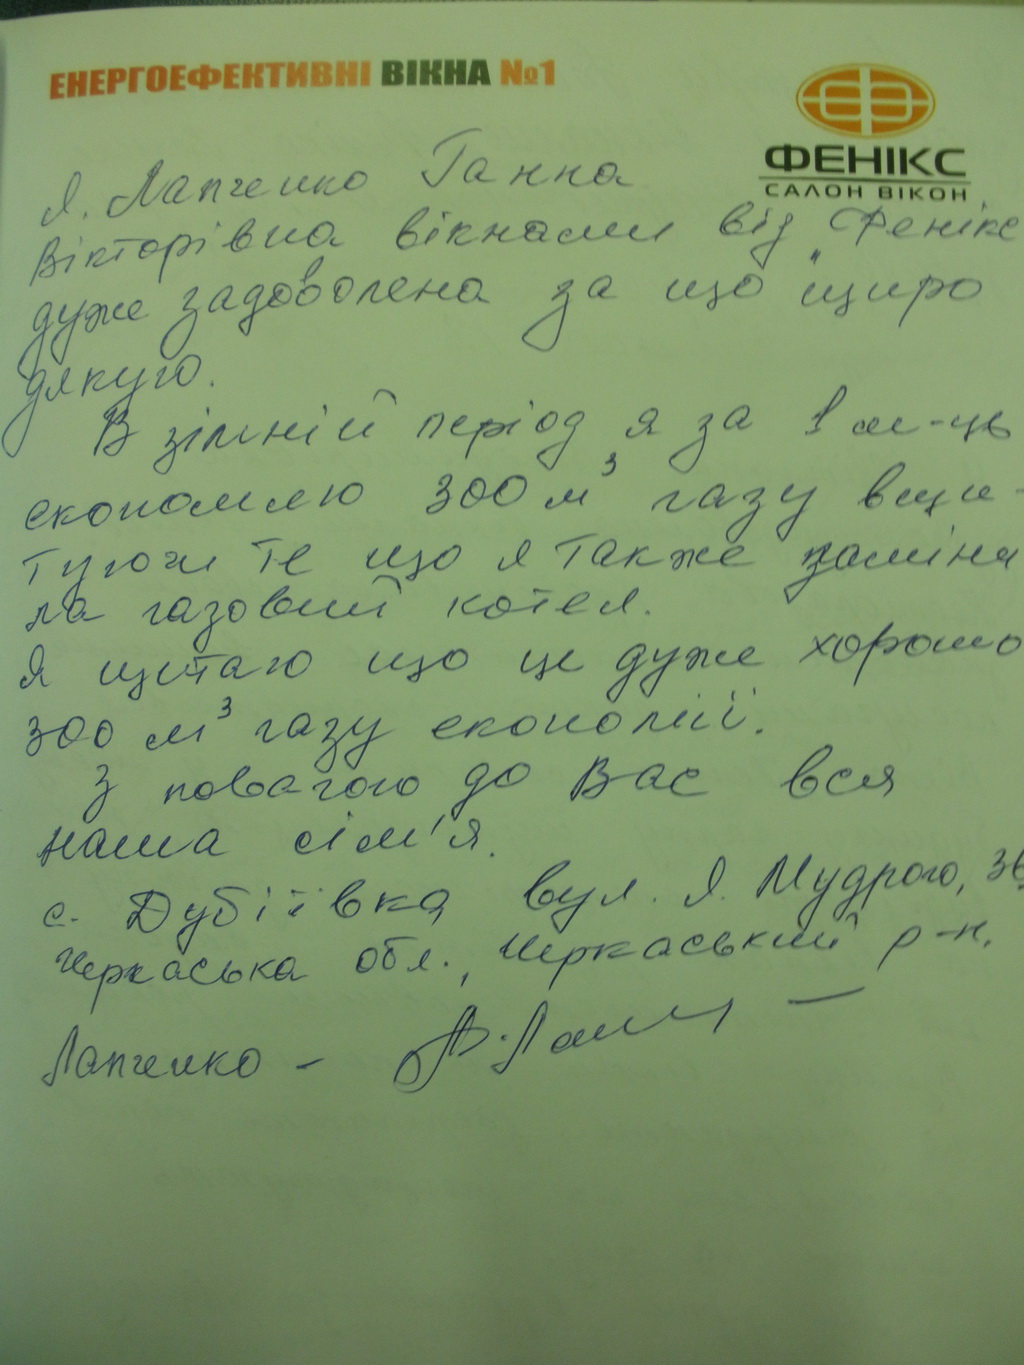 ЕНЕРГОЕФЕКТИВНІ ВІКНА №1
ФЕНІКС
САЛОН ВІКОН
Я. Лапченко Ганна
Вікторівна вікнами від "Фенікс
дуже задоволена за що щиро
дякую.
В зімній період я за 1 м-ць
економлю 300 м³ газу вщи-
туючи те що я также заміня
ла газовий котел.
Я щитаю що це дуже хорошо
300 м³ газу економії.
З повагою до Вас вся
наша сім'я.
с. Дубіївка вул. Я. Мудрого, 36
Черкаська обл., Черкаський р-н.
Лапченко -